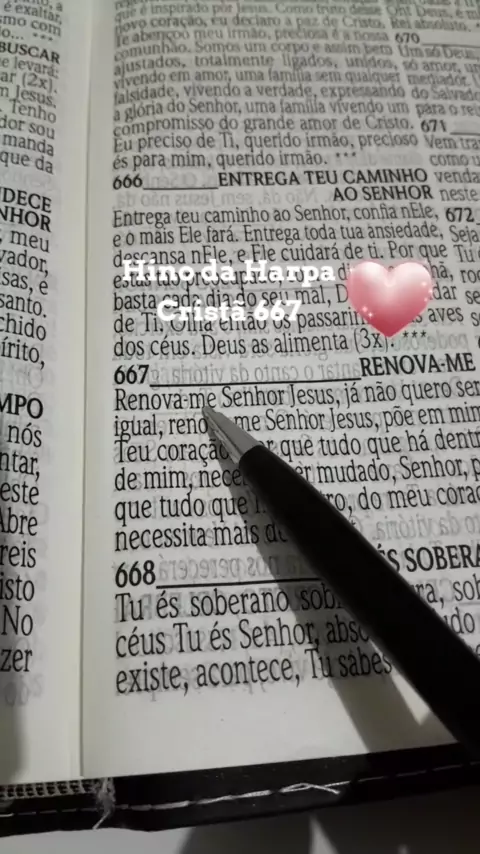 é exaltar,
smo com
BUSCAR
e levará:
ar (2x).
n Jesus.
Tenho
dor sou
manda
que da
DECE
NHOR
, meu
vador,
isas, e
santo.
chido
írito,
MPO
nós
ntar,
este
Abre
reis
isto
No
zer
que é inspirado por Jesus. Como fruto desse
novo coração, eu declaro a paz de Cristo, Rei absoluto. ***
Te abençoo meu irmão, preciosa é a nossa 670
comunhão. Somos um corpo e assim bem Um só Deus,
ajustados, totalmente ligados, unidos, só amor,
vivendo em amor, uma família sem qualquer mediador.
falsidade, vivendo a verdade, expressando do Salvado
a glória do Senhor, uma família vivendo um para o rei
compromisso do grande amor de Cristo. 671
Eu preciso de Ti, querido irmão, precioso Vem
és para mim, querido irmão. *** como
666 ENTREGA TEU CAMINHO venda
AO SENHOR neste
Entrega teu caminho ao Senhor, confia nEle, 672
e o mais Ele fará. Entrega toda tua ansiedade, Seja
descansa nEle, e Ele cuidará de ti. Por que Tu
Hino da Harpa
basta cada dia do seu mal, dar se
Cristã 667
de Ti. Olha então os passarin aves so
dos céus. Deus as alimenta (3x). ***
667 RENOVA-ME
Renova-me Senhor Jesus, já não quero ser
igual, reno me Senhor Jesus, põe em mim
Teu coração que tudo que há dentr
de mim, nece er mudado, Senhor, p
que tudo que ro, do meu cora
necessita mais de
668 S SOBERA
Tu és soberano sob ra, sob
céus Tu és Senhor, abso udo
existe, acontece, Tu sabes